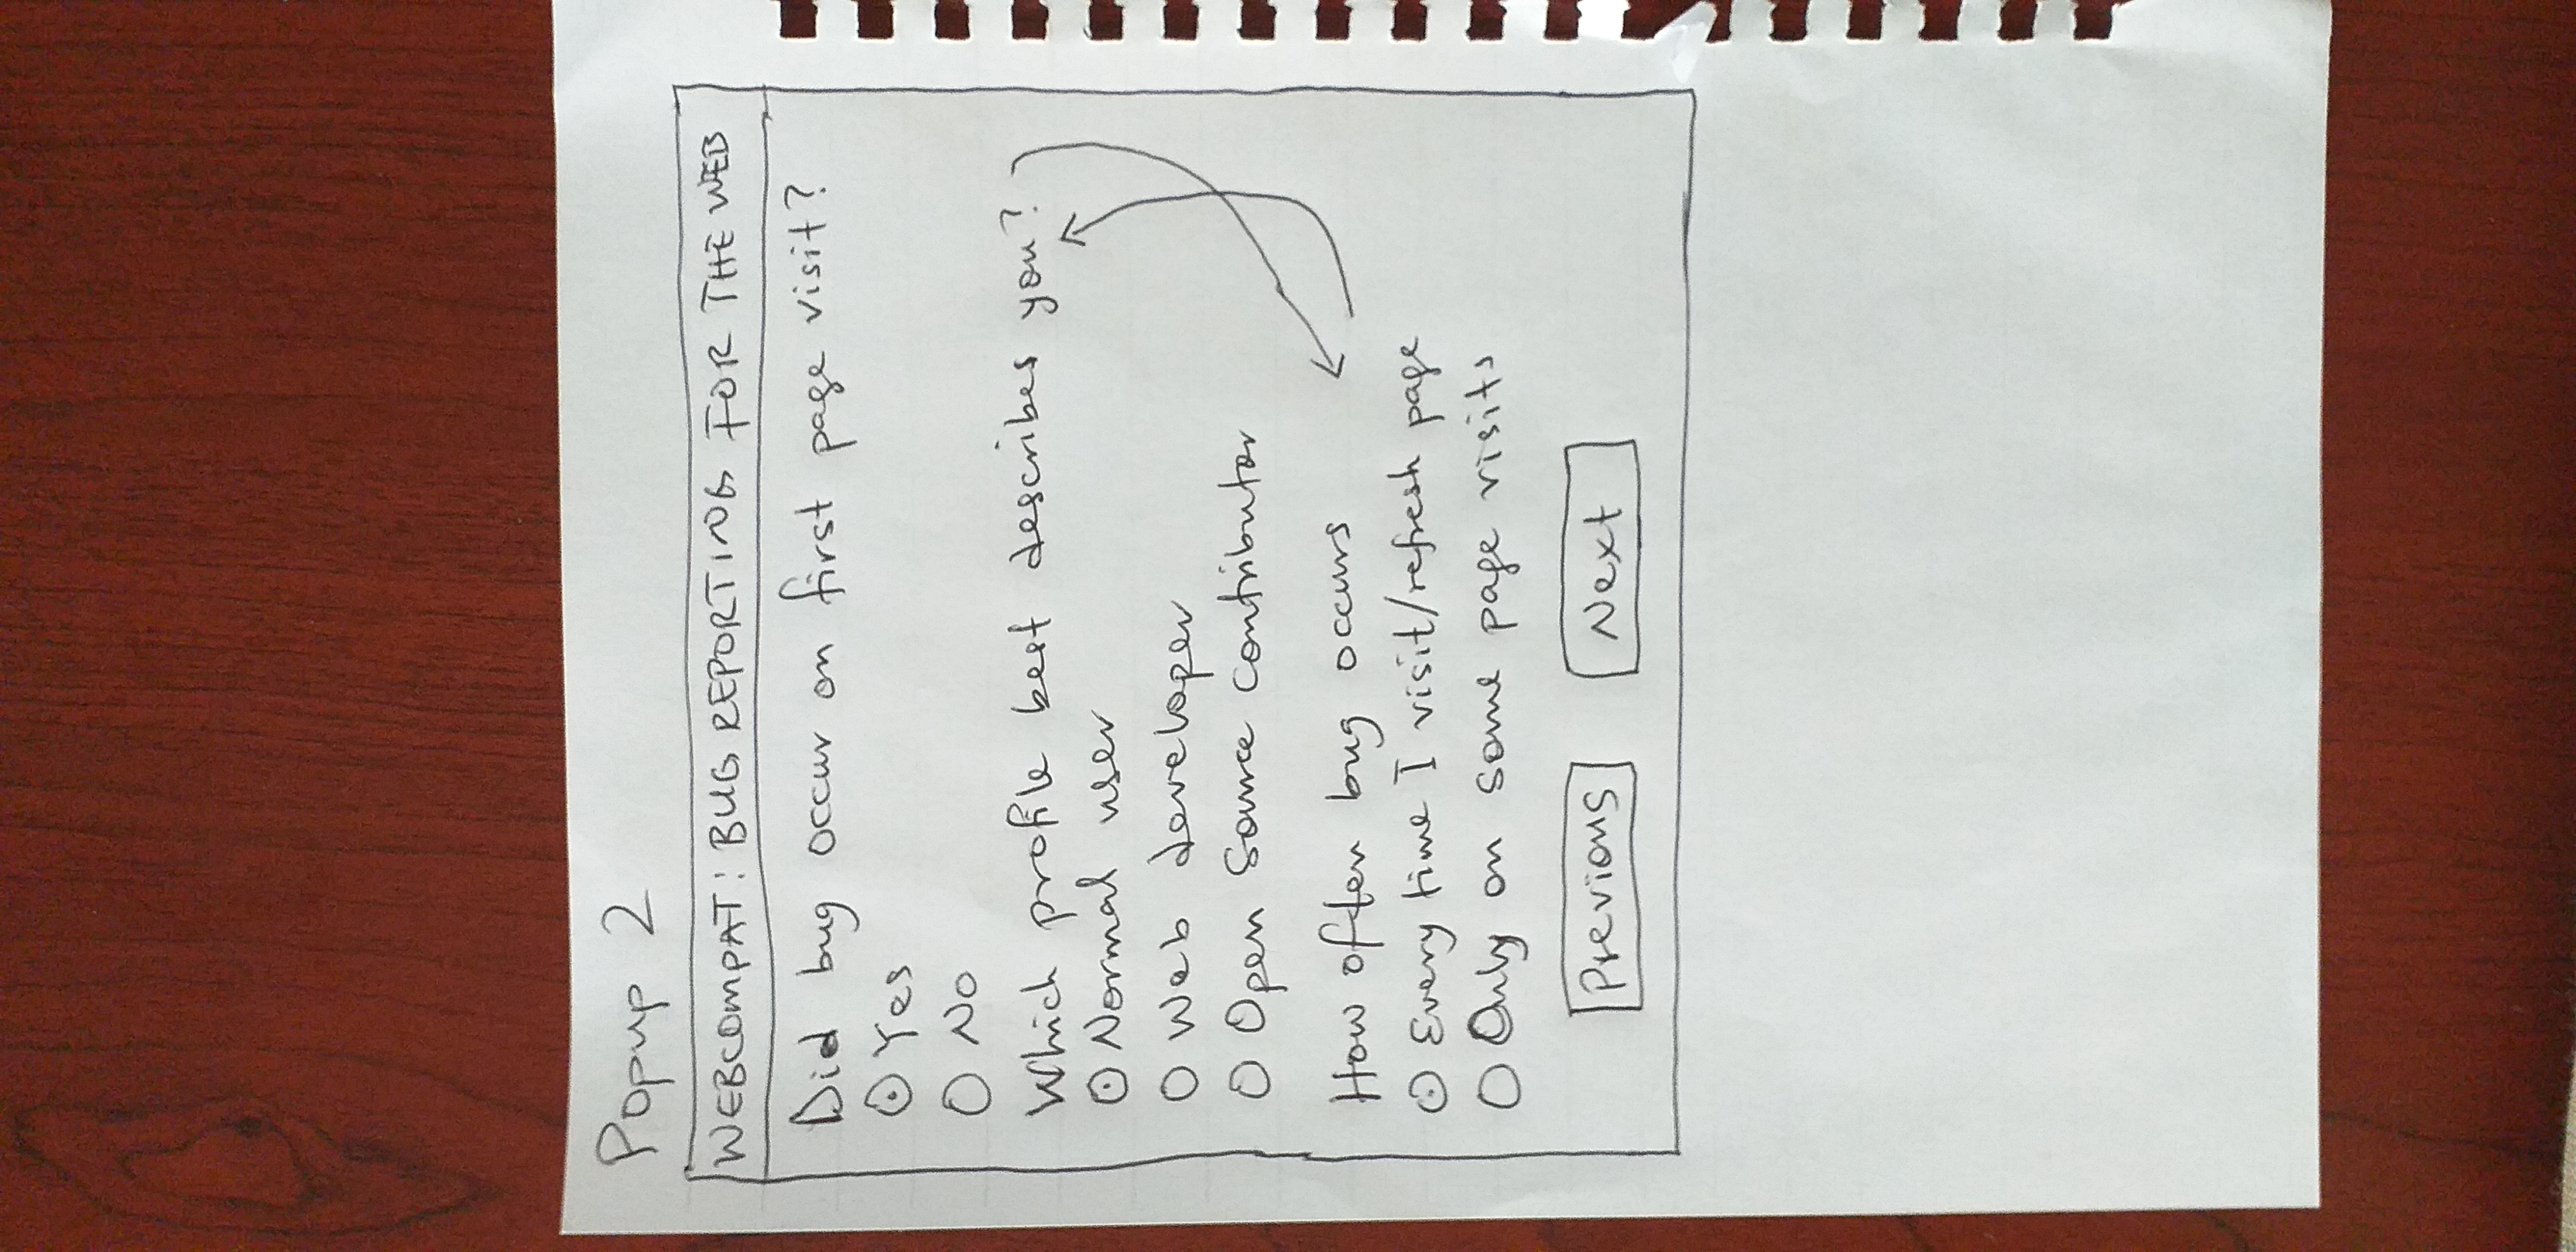 Popup 2
WEBCOMPAT: BUG REPORTING FOR THE WEB
Did bug occur on first page visit?
Yes
No
Which profile best describes you?
Normal user
Web developer
Open Source Contributor
How often bug occurs
Every time I visit/refresh page
Only on some page visits
Previous Next